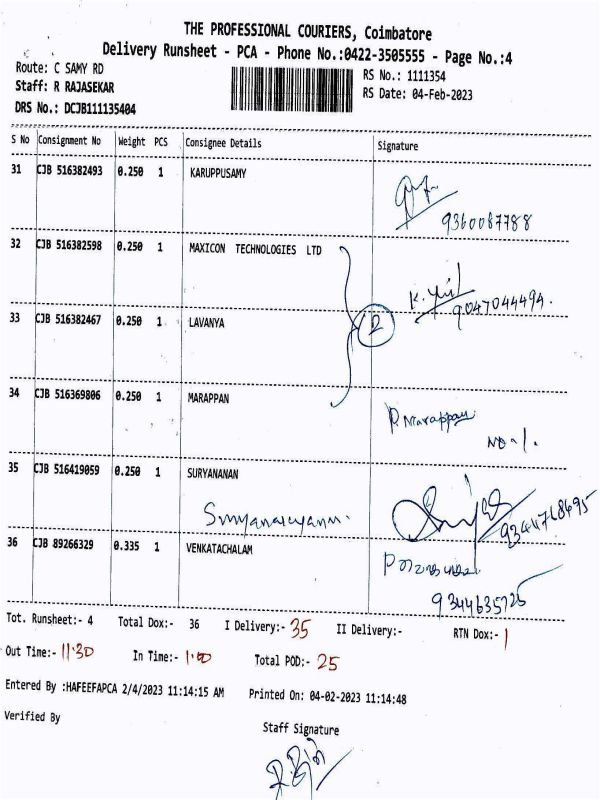 THE PROFESSIONAL COURIERS, Coimbatore
Delivery Runsheet - PCA - Phone No.:0422-3505555 - Page No.:4
Route: C SAMY RD
Staff: R RAJASEKAR
DRS No.: DCJB111135404
RS No.: 1111354
RS Date: 04-Feb-2023
S No Consignment No Weight PCS Consignee Details Signature
31 CJB 516382493 0.250 1 KARUPPUSAMY
9360087788
32 CJB 516382598 0.250 1 MAXICON TECHNOLOGIES LTD
9047044494.
33 CJB 516382467 0.250 1 LAVANYA
2
34 CJB 516369806 0.250 1 MARAPPAN
P. Marappan
35 CJB 516419059 0.250 1 SURYANANAN
36 CJB 89266329 0.335 1 VENKATACHALAM
9344635725
Tot. Runsheet:- 4 Total Dox:- 36 I Delivery:- 35 II Delivery:- RTN Dox:- 1
Out Time:- 11:30 In Time:- 1:00 Total POD:- 25
Entered By :HAFEEFAPCA 2/4/2023 11:14:15 AM Printed On: 04-02-2023 11:14:48
Verified By
Staff Signature